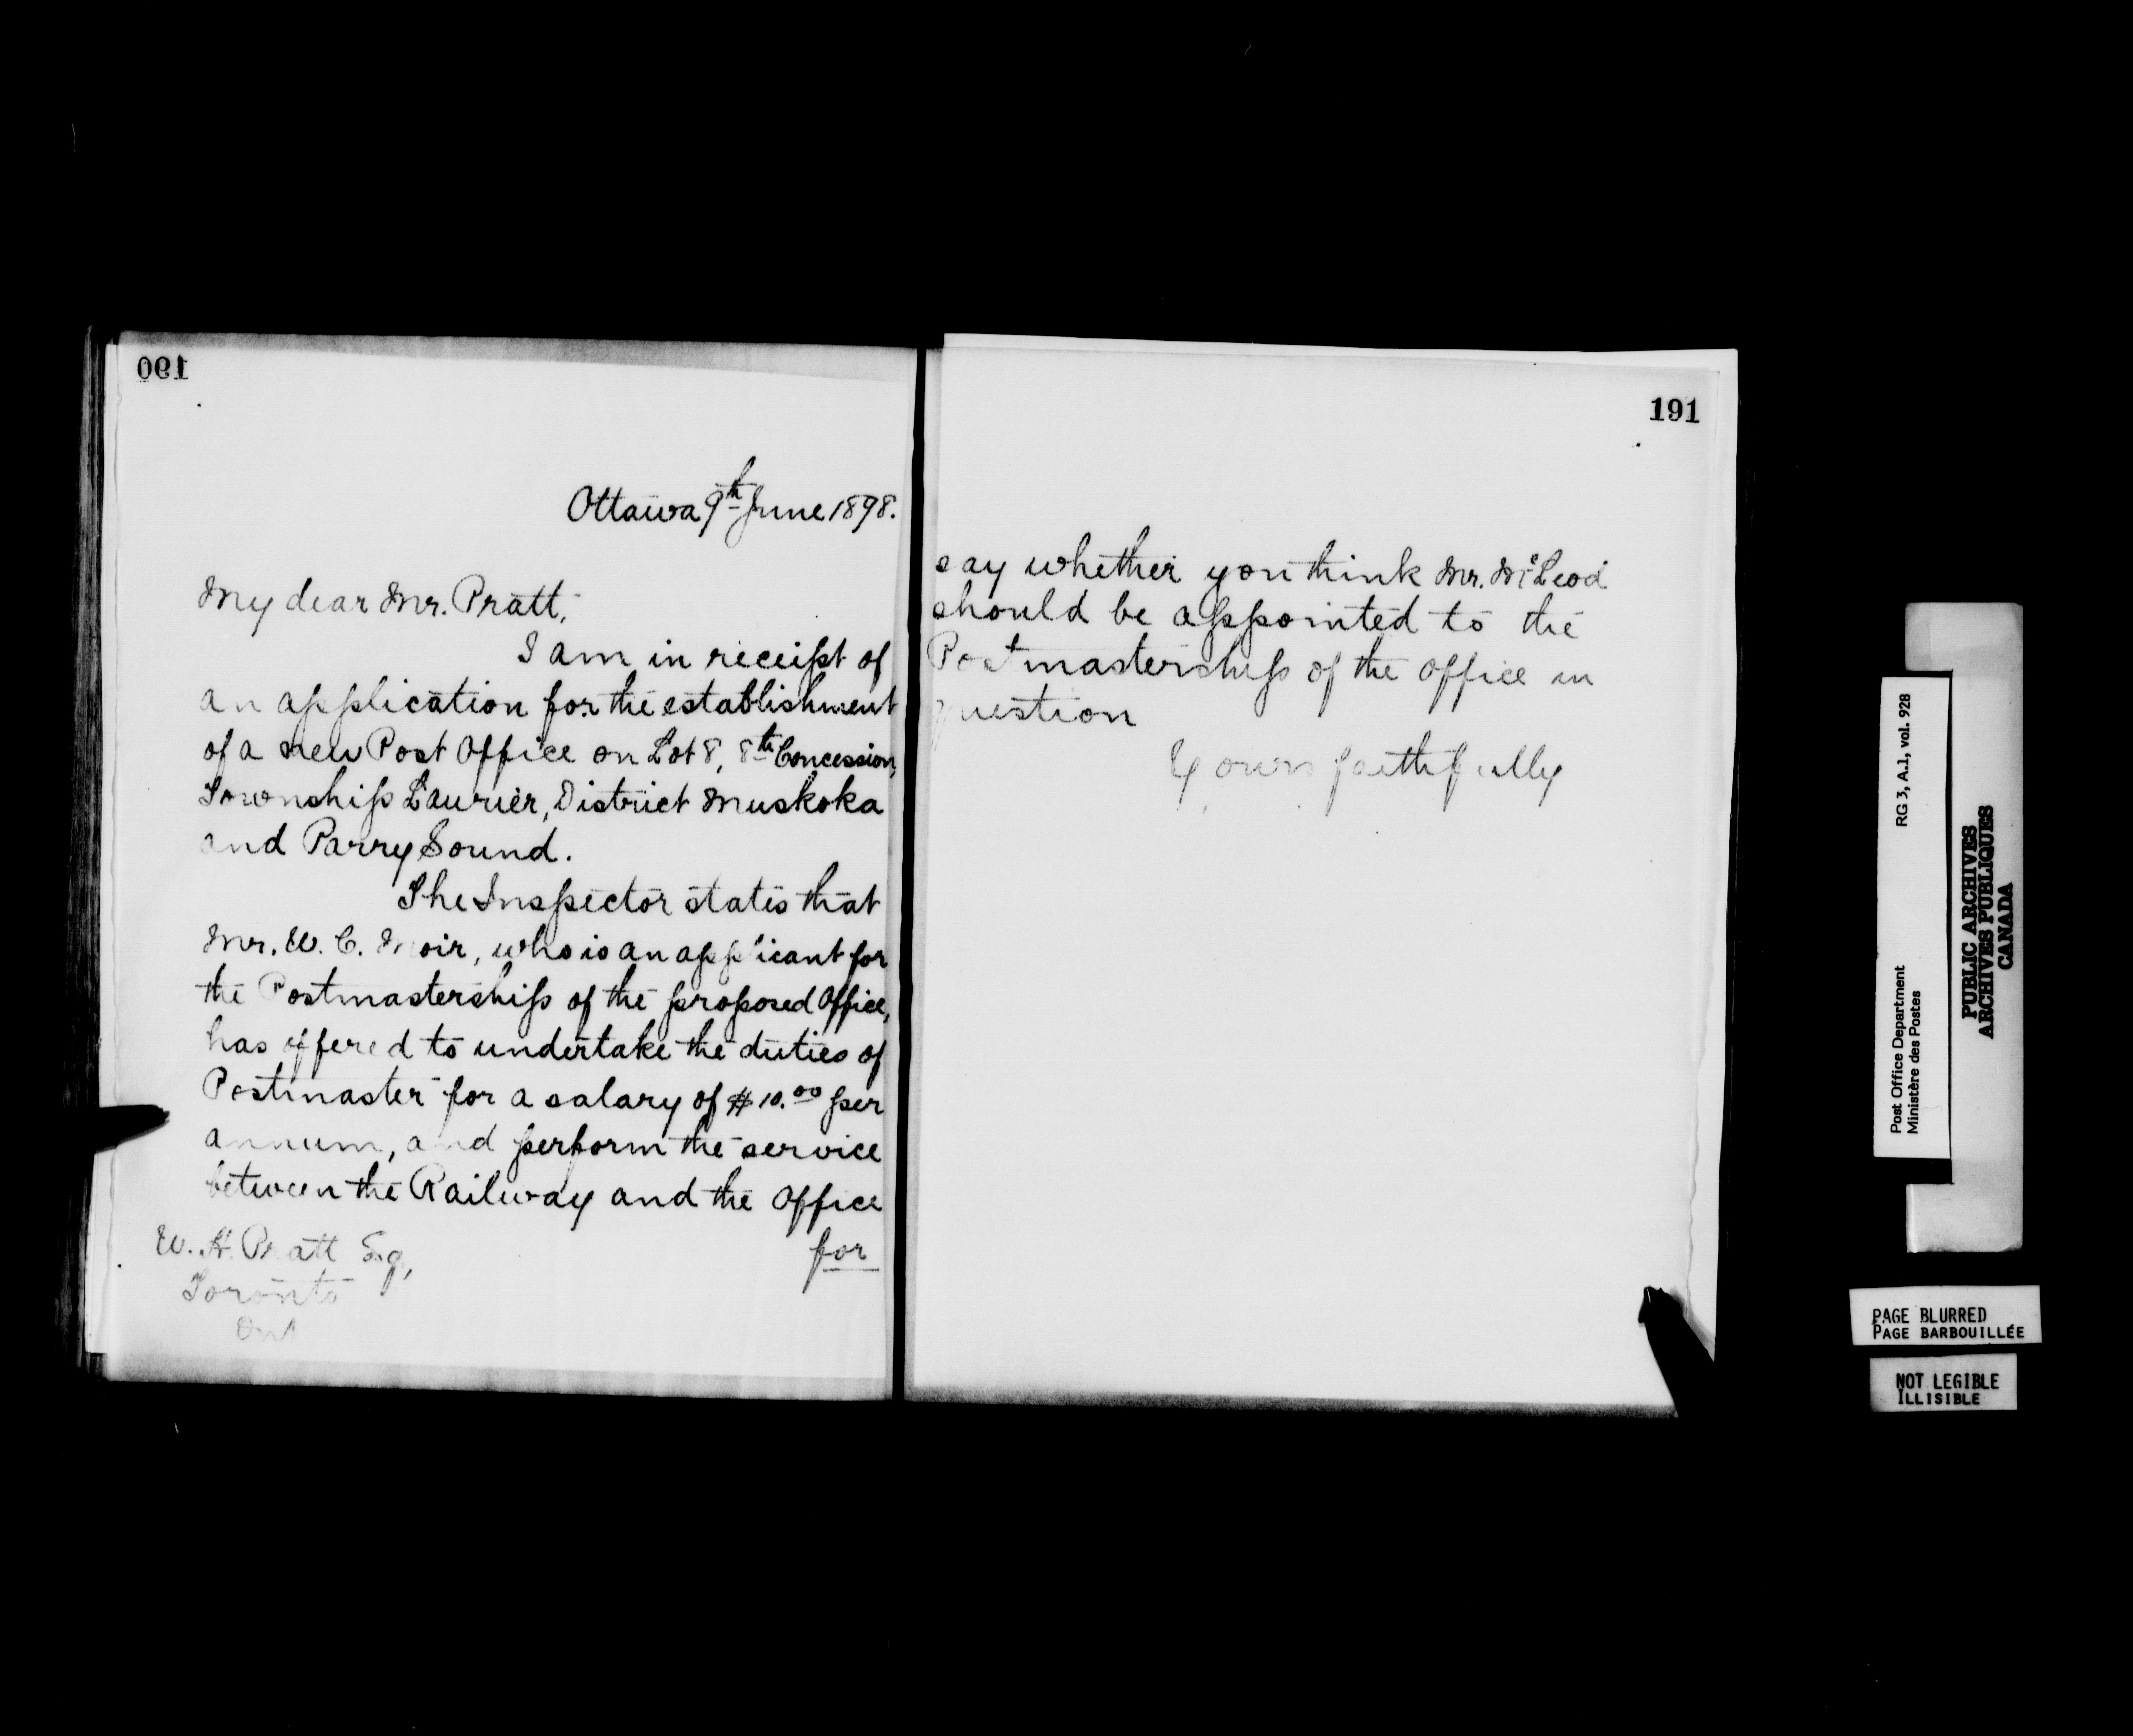 190
Ottawa 9th June 1898.
My dear Mr. Pratt,
I am in receipt of
an application for the establishment
of a new Post Office on Lot 8, 8th Concession,
Township Laurier, District Muskoka
and Parry Sound.
The Inspector states that
Mr. W. C. Moir, who is an applicant for
the Postmastership of the proposed Office,
has offered to undertake the duties of
Postmaster for a salary of $10.00 per
annum, and perform the service
between the Railway and the Office
for
W. H. Pratt Esq,
Toronto
Ont
191
say whether you think Mr. McLeod
should be appointed to the
Postmastership of the office in
question
Yours faithfully
Post Office Department
Ministère des Postes
RG 3, A.1, vol. 928
PUBLIC ARCHIVES
ARCHIVES PUBLIQUES
CANADA
PAGE BLURRED
PAGE BARBOUILLÉE
NOT LEGIBLE
ILLISIBLE